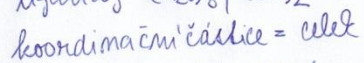 koordinační částice = celek